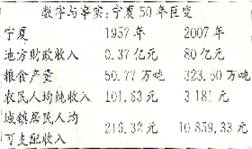 数字与事实:宁夏50年巨变
宁夏 1957年 2007年
地方财政收入 0.37亿元 80亿元
粮食产量 50.77万吨 323.50万吨
农民人均纯收入 101.63元 3181元
城镇居民人均
可支配收入 216.32元 10859.33元